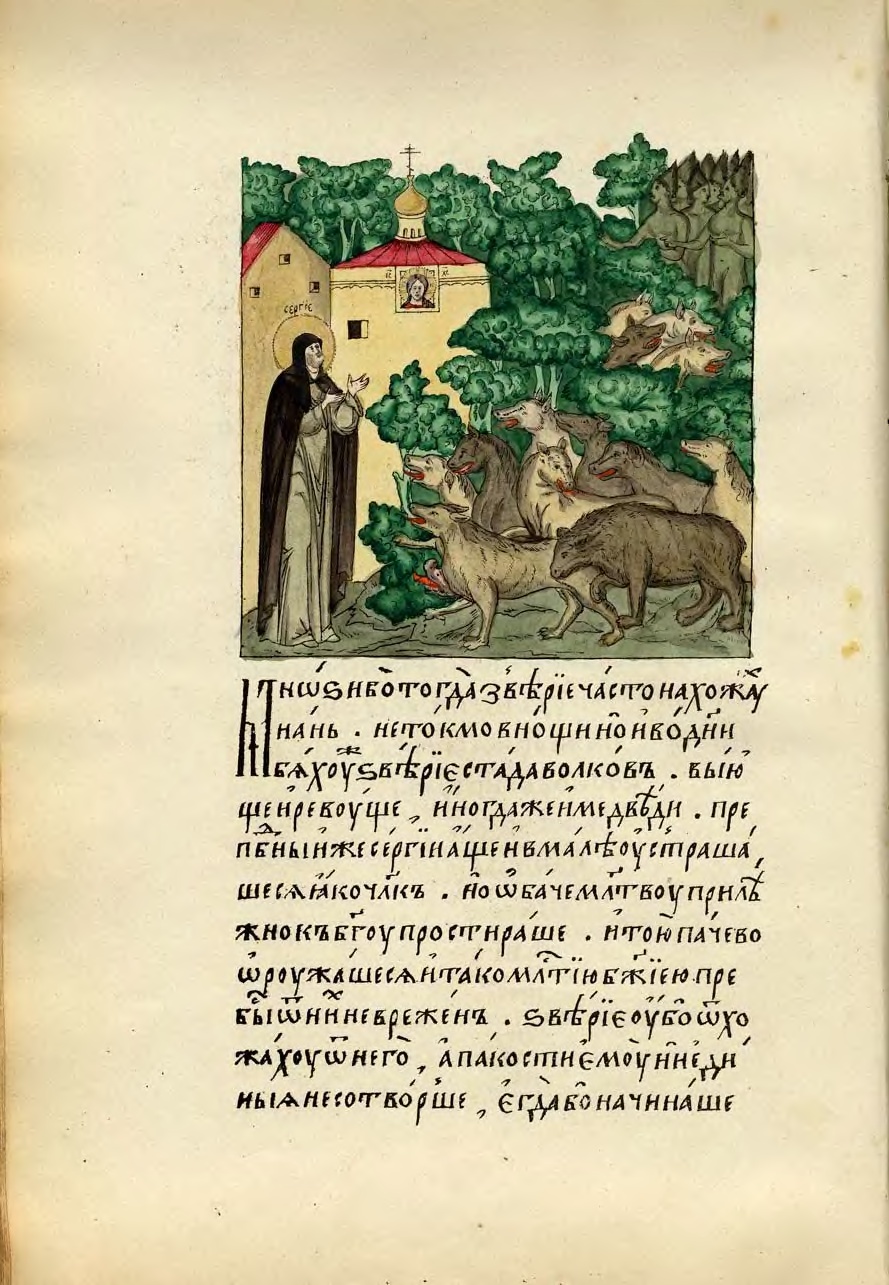 сергїе
І҃С Х҃С
Мнѡѕи бо тогда̀ звѣ́рїе ча́сто нахожа́хꙋ
на́нь . не то́кмо в нощѝ но̀ и во днѝ
бѧ́хꙋ ѕвѣ́рїе ста́да волко́въ . вы́ю
ще и҆ реву́ще , и҆ногда́ же и҆ медвѣ́ди . пре
пб҃ныи же се́ргїи а҆́ще и҆ вма́лѣ оу҆страша́
шесѧ ꙗ҆́ко чл҃къ . но̀ ѻ҆ба́че мл҃тву прилѣ́
жно къ бг҃оу простира́ше . и҆ то́ю па́че во
ѡ҆ружа́шесѧ и҆ та́ко мл҃тїю бж҃їею пре
бы́сть ѿ ни́хъ невреже́нъ . ѕвѣ́рїе оу҆́бо ѿхо
жа́хоу ѿ него̀ , а҆ па́кости є҆моу̀ ни є҆ди
ныѧ несотво́рше , є҆гда̀ бо начина́ше